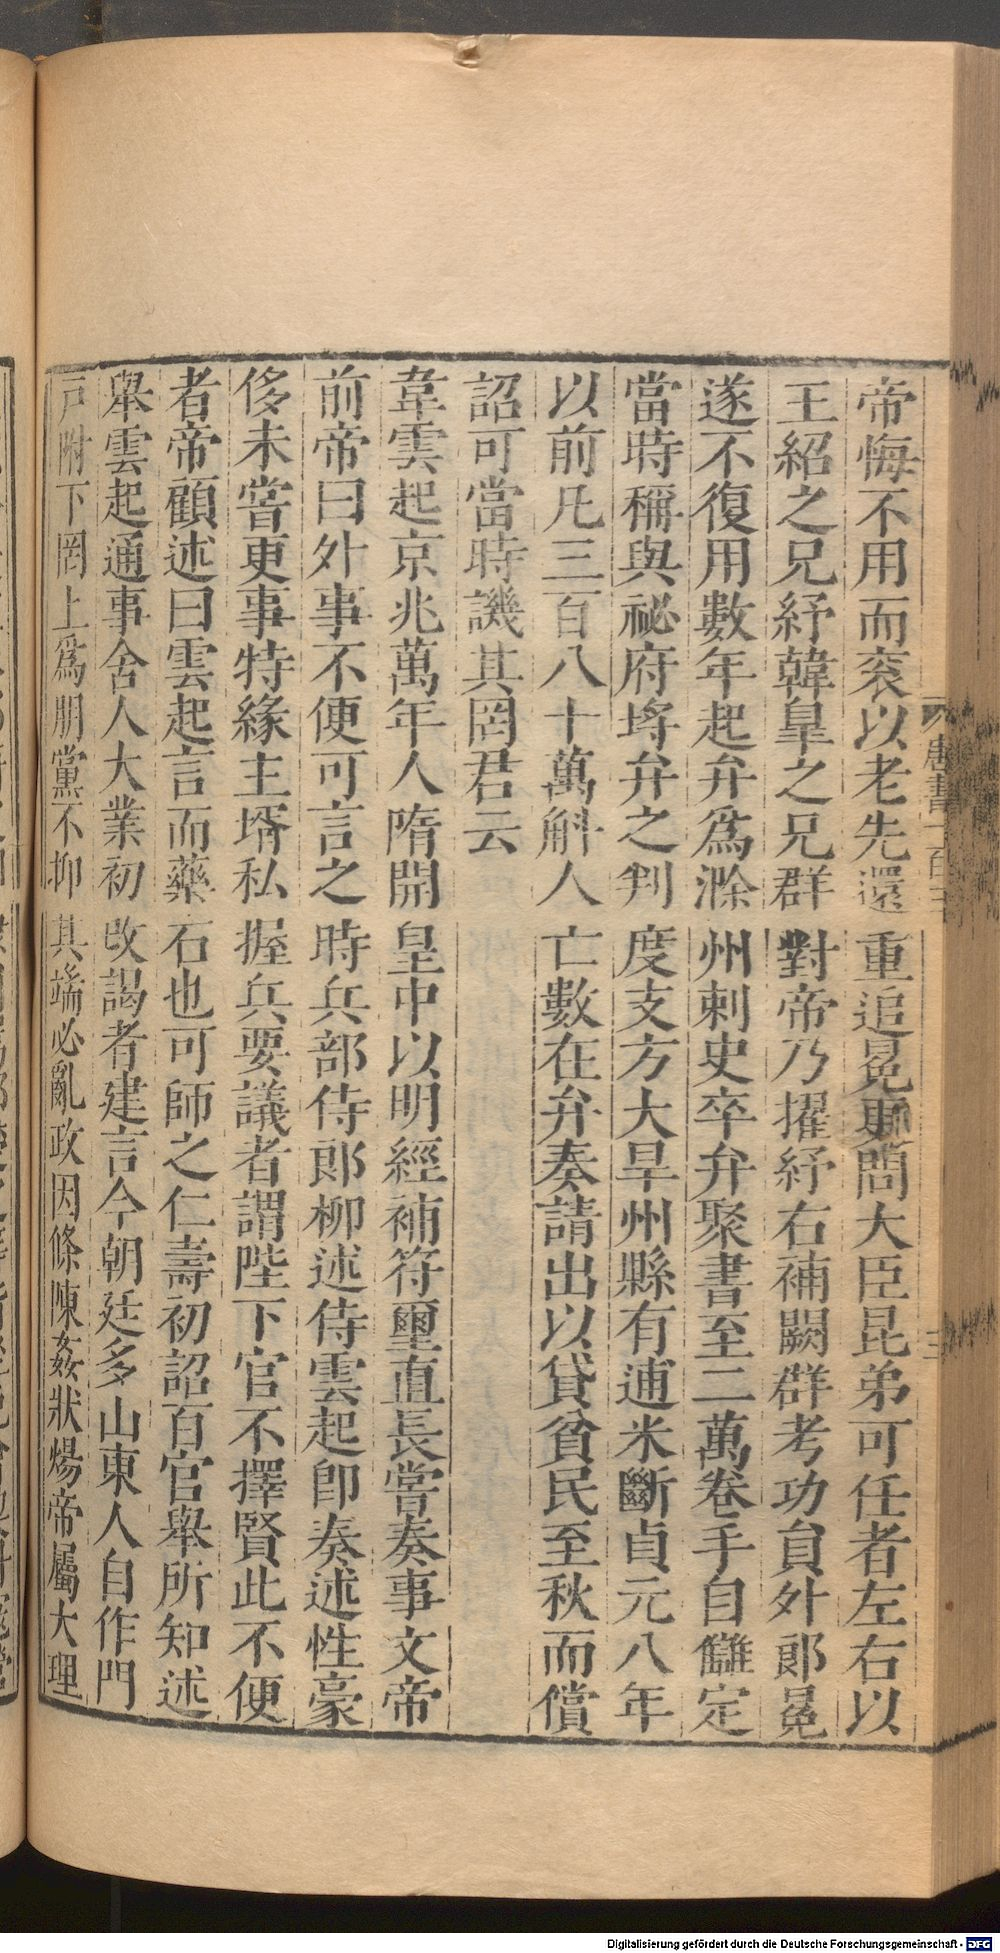 帝悔不用而袞以老先還重追冕更問大臣昆弟可任者左右以
王紹之兄紓韓皐之兄群對帝乃擢紓右補闕群考功員外郎冕
遂不復用數年起弁爲滁州刺史卒弁聚書至二萬卷手自讎定
當時稱與祕府埒弁之判度支方大旱州縣有逋米斷貞元八年
以前凡三百八十萬斛人亡數在弁奏請出以貸貧民至秋而償
詔可當時譏其罔君云
韋雲起京兆萬年人隋開皇中以明經補符璽直長嘗奏事文帝
前帝曰外事不便可言之時兵部侍郎柳述侍雲起卽奏述性豪
侈未嘗更事特緣主壻私握兵要議者謂陛下官不擇賢此不便
者帝顧述曰雲起言而藥石也可師之仁壽初詔百官舉所知述
舉雲起通事舍人大業初改謁者建言今朝廷多山東人自作門
戸附下罔上爲朋黨不抑其端必亂政因條陳姦狀煬帝屬大理
唐書一百三
三
Digitalisierung gefördert durch die Deutsche Forschungsgemeinschaft - DFG